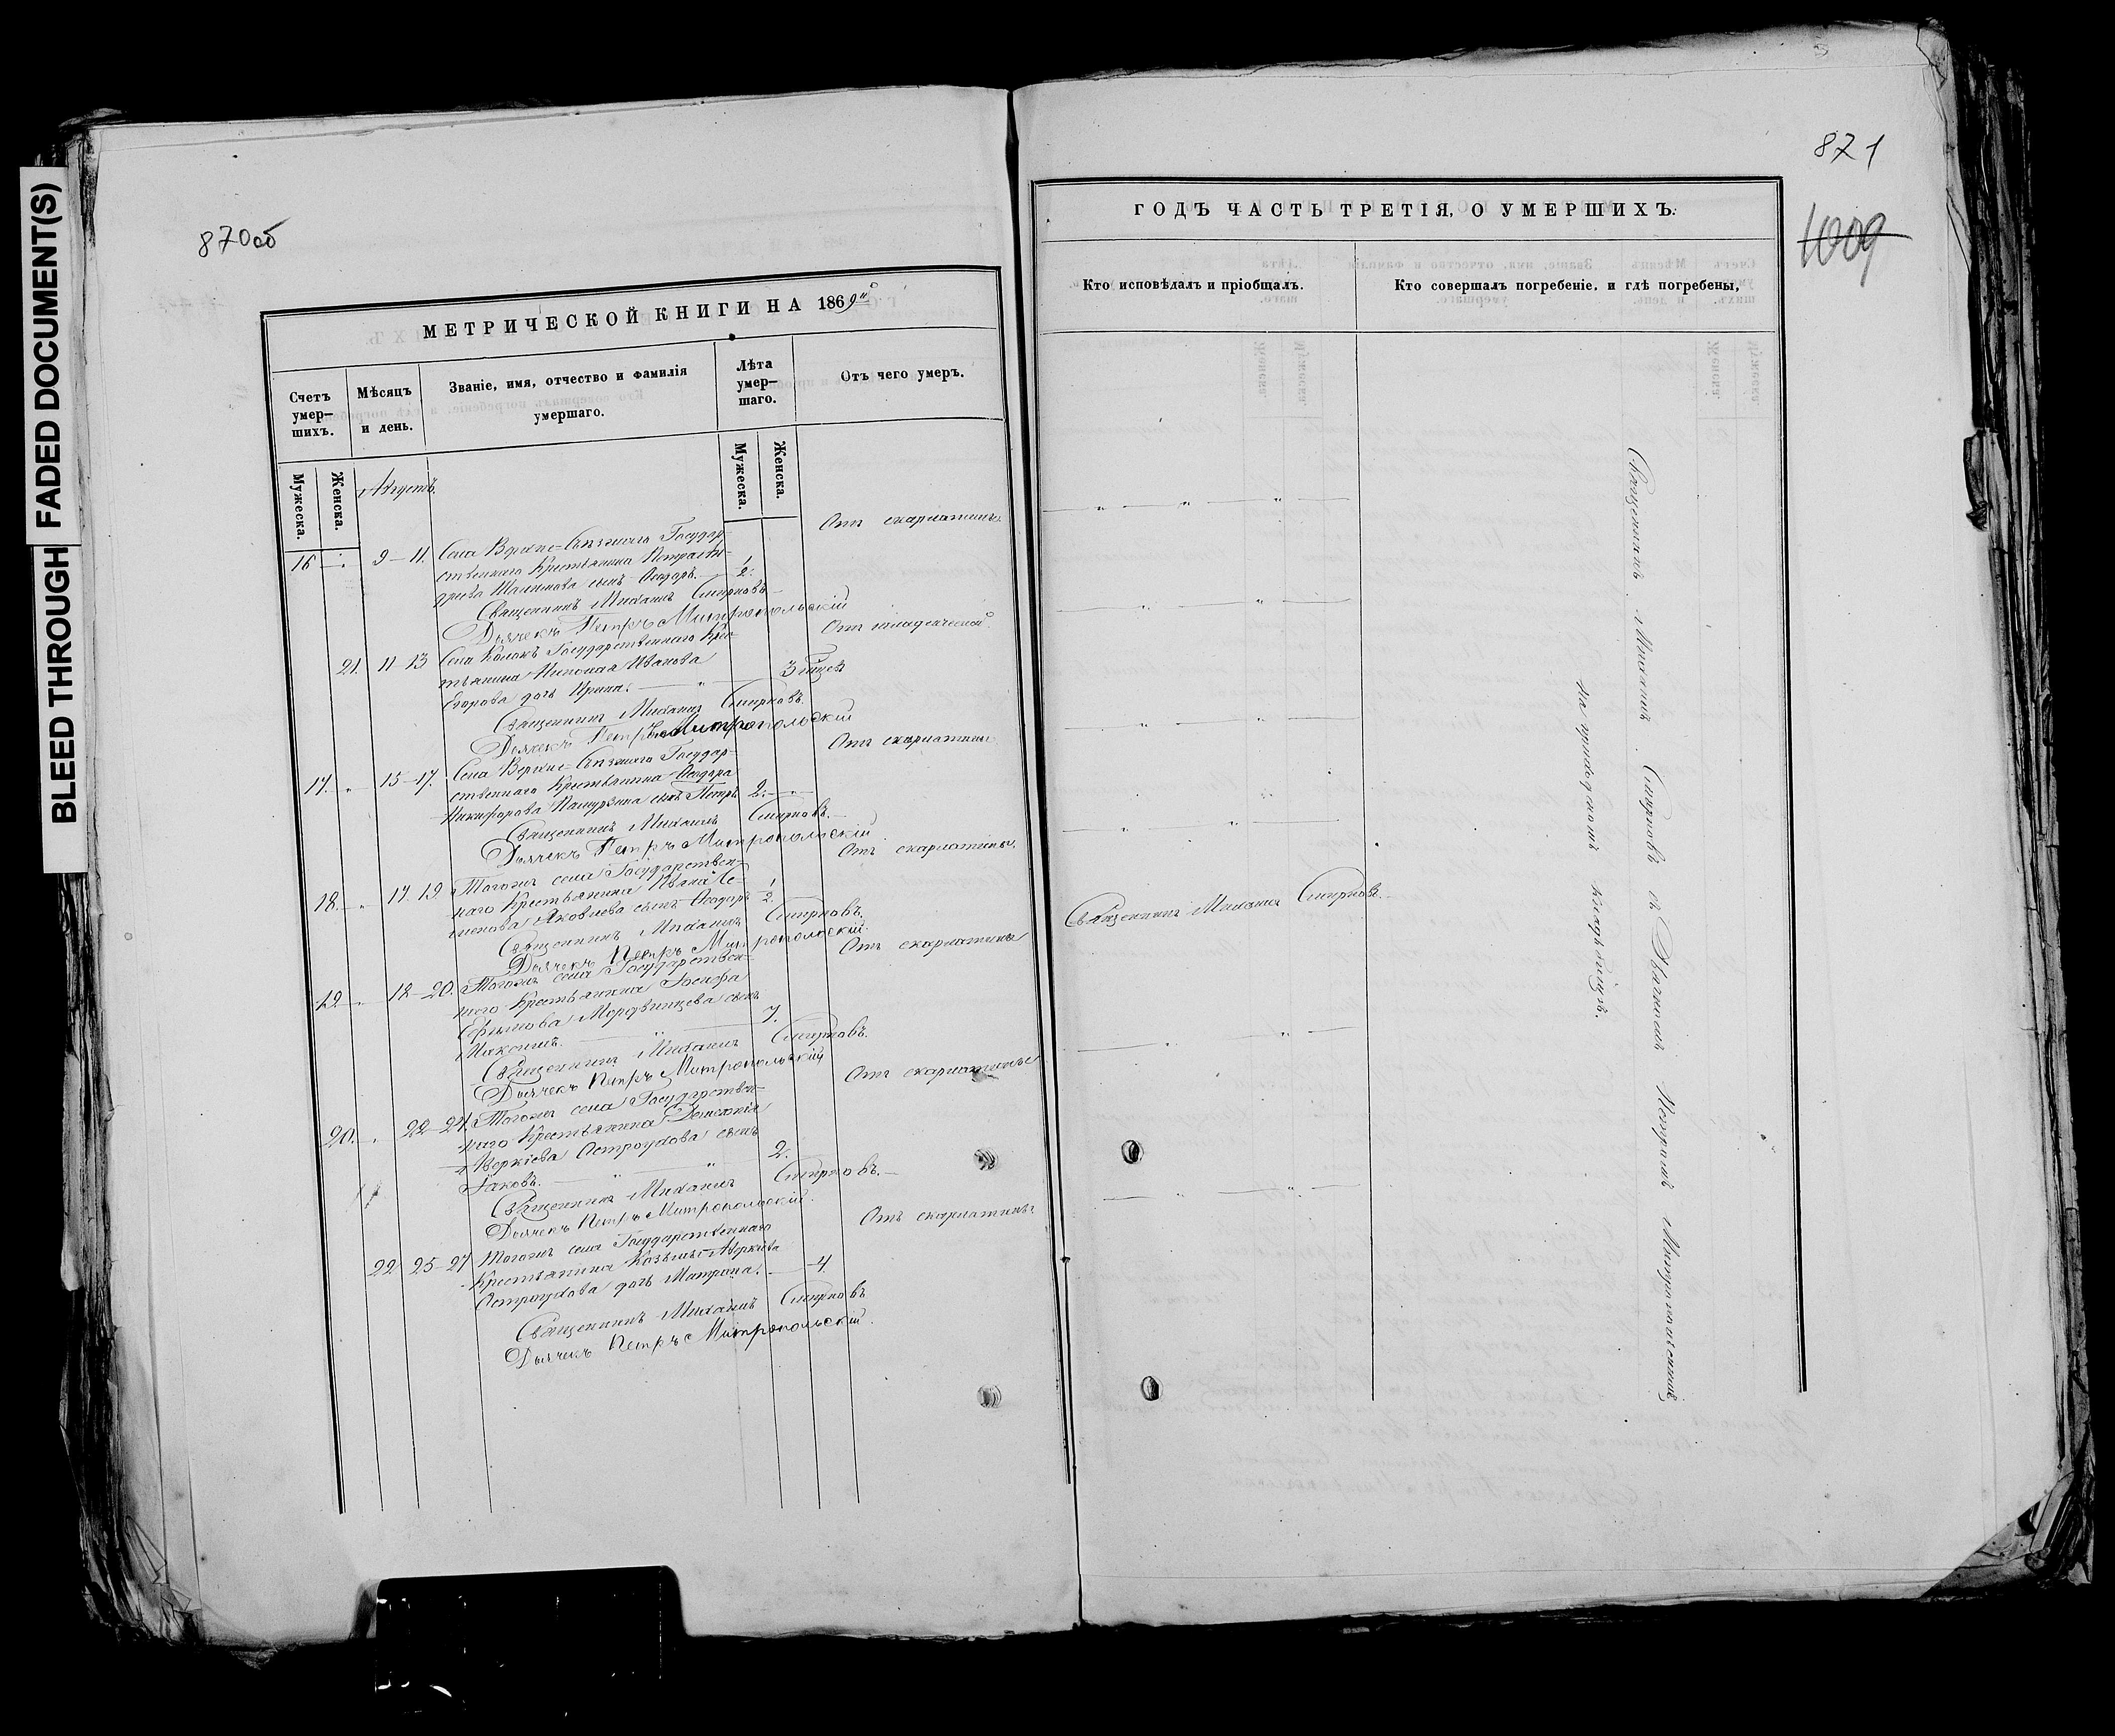 BLEED THROUGH
FADED DOCUMENT(S)
870об
МЕТРИЧЕСКОЙ КНИГИ НА 1869й
Счетъ умер-шихъ.
Мѣсяцъ и день.
Званіе, имя, отчество и фамилія умершаго.
Лѣта умер-шаго.
Отъ чего умеръ.
Мужеска.
Женска.
Мужеска.
Женска.
Августъ.
16 9-11. Села Верхне= Государ-
Отъ скарлатины.
ственнаго Крестьянина Петра Ан-
дреева сынъ Ѳеодоръ. 1/2.
Священникъ Михаилъ Смирновъ.
Дьячекъ Петръ Митропольскій
21. 11-13 Села Государственнаго Крес-
Отъ младенческой.
тьянина Николая Иванова
3 мѣсяц.
Егорова дочь Ирина.
Священникъ Михаилъ Смирновъ.
Дьячекъ Петръ Митропольскій
17. 15-17. Села Верхне= Государ-
Отъ скарлатины
ственнаго Крестьянина Ѳеодора
Никифорова сынъ Петръ 2.
Священникъ Михаилъ Смирновъ.
Дьячекъ Петръ Митропольскій
18. 17-19. Тогожъ села Государствен-
Отъ скарлатины.
наго Крестьянина Ивана Се-
менова Яковлева сынъ Ѳеодоръ 1/2
Священникъ Михаилъ Смирновъ.
Дьячекъ Петръ Митропольскій.
19. 18-20. Тогожъ села Государствен-
Отъ скарлатины
наго Крестьянина Іосифа
Ефимова Мордвинцева сынъ
Максимъ. 7.
Священникъ Михаилъ Смирновъ.
Дьячекъ Петръ Митропольскій
20. 22-24. Тогожъ села Государствен-
Отъ скарлатины
наго Крестьянина
Аверкіева Остроухова сынъ
Іаковъ. 2.
Священникъ Михаилъ Смирновъ.
Дьячекъ Петръ Митропольскій.
22 25-27 Тогожъ села Государственнаго
Отъ скарлатины
Крестьянина Козьмы Аверкіева
Остроухова дочь Матрона. 4.
Священникъ Михаилъ Смирновъ
Дьячекъ Петръ Митропольскій.
871
1009
ГОДЪ ЧАСТЬ ТРЕТІЯ, О УМЕРШИХЪ.
Кто исповѣдалъ и пріобщалъ.
Кто совершалъ погребеніе, и гдѣ погребены,
Священникъ Михаилъ Смирновъ.
Священникъ Михаилъ Смирновъ съ Дьячкомъ Петромъ Митропольскимъ
на приходскомъ кладбищѣ.